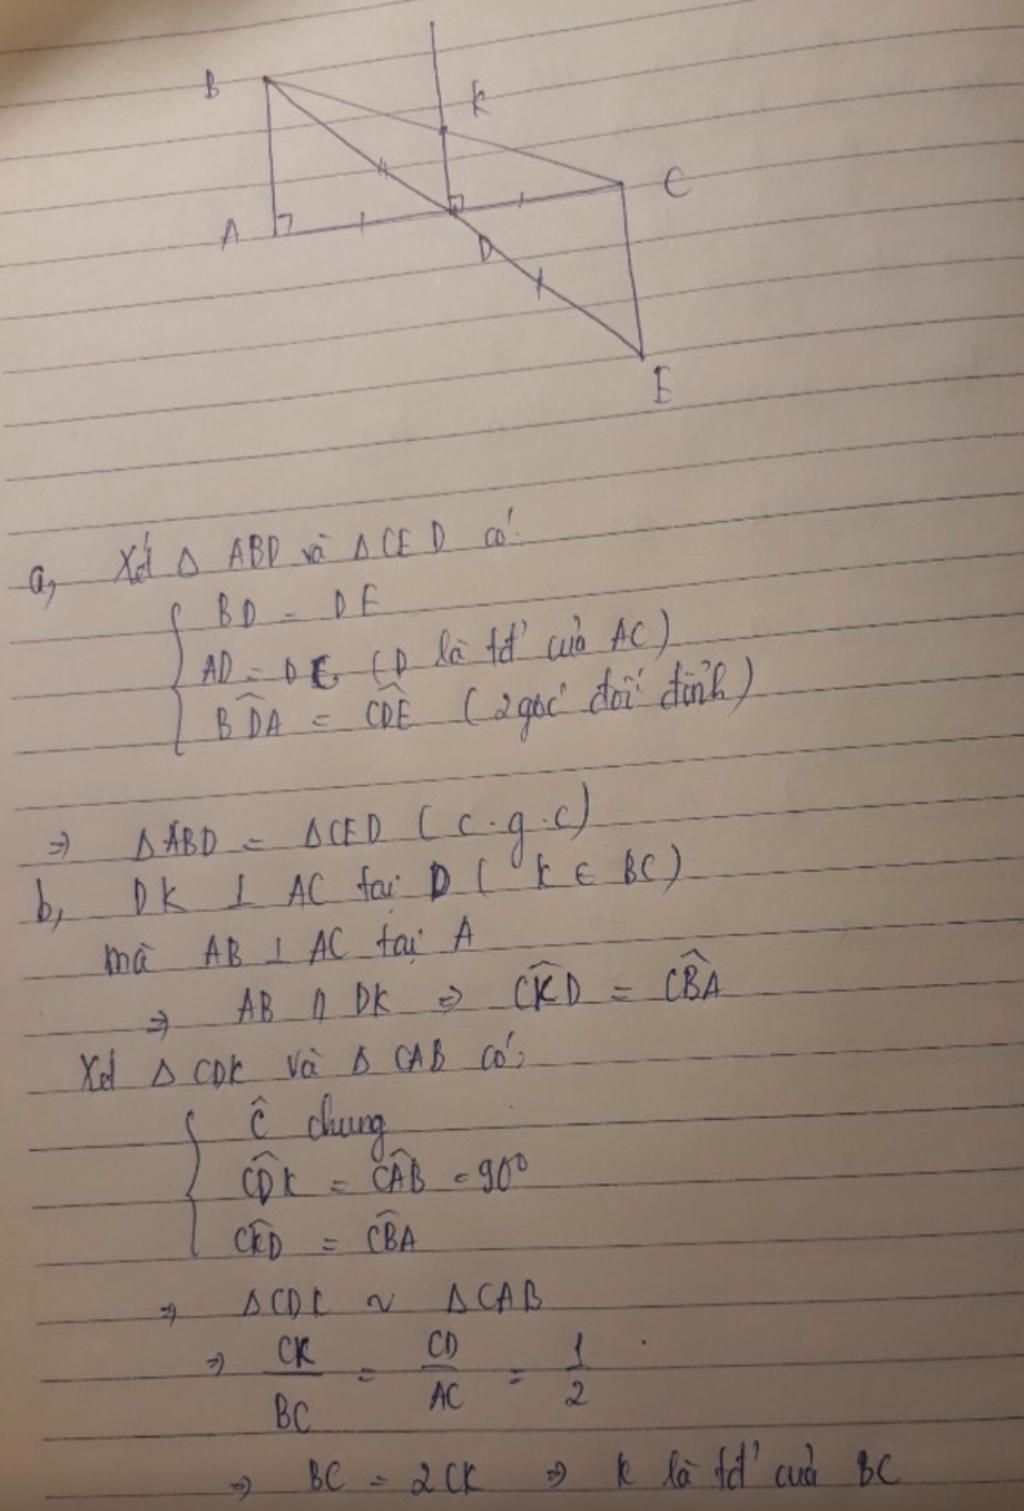 B
K
C
A
D
E
a, Xét Δ ABD và Δ CED có:
BD = DE
AD = DC (D là tđ' của AC)
B̂DA = ĈDE (2 góc đối đỉnh)
⇒ ΔABD = ΔCED (c.g.c)
b, DK ⊥ AC tại D (K ∈ BC)
mà AB ⊥ AC tại A
⇒ AB // DK ⇒ CK̂D = CB̂A
Xét Δ CDK và Δ CAB có:
Ĉ chung
CD̂K = CÂB = 90°
CK̂D = CB̂A
⇒ ΔCDK ~ ΔCAB
⇒ CK/BC = CD/AC = 1/2
⇒ BC = 2CK ⇒ K là tđ' của BC